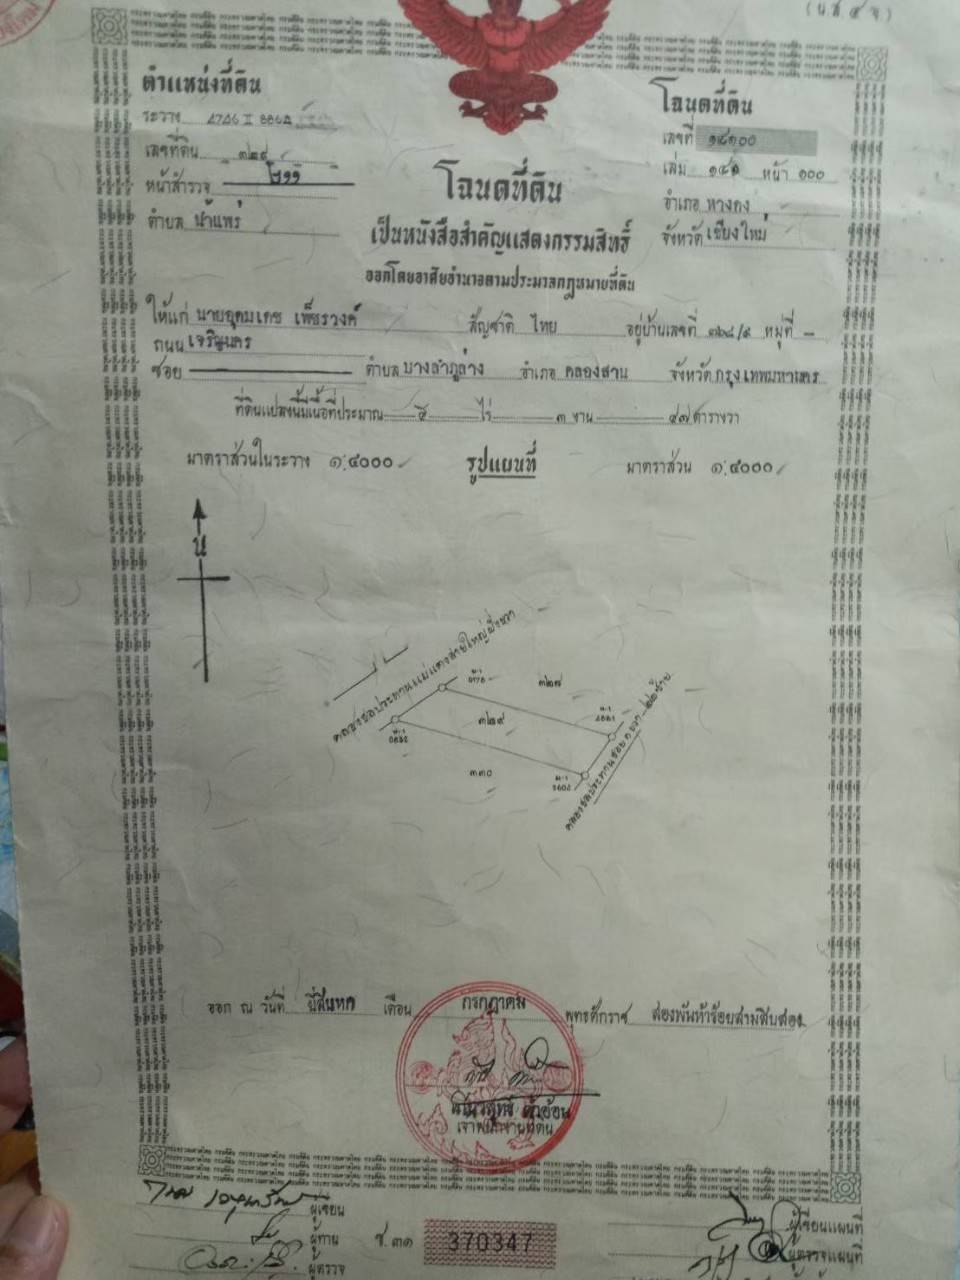 (น.ส.๔ จ)
ตำแหน่งที่ดิน
ระวาง
เลขที่ดิน ๓๒๙
หน้าสำรวจ
ตำบล น้ำแพร่
โฉนดที่ดิน
เลขที่ ๑๔๑๐๐
เล่ม ๑๔๑ หน้า ๑๐๐
อำเภอ หางดง
จังหวัด เชียงใหม่
โฉนดที่ดิน
เป็นหนังสือสำคัญแสดงกรรมสิทธิ์
ออกโดยอาศัยอำนาจตามประมวลกฎหมายที่ดิน
ให้แก่ นายอุดมเดช เพ็ชรวงค์ สัญชาติ ไทย อยู่บ้านเลขที่ ๓๒๘/๙ หมู่ที่ -
ถนน เจริญนคร
ซอย ตำบล บางลำภูล่าง อำเภอ คลองสาน จังหวัด กรุงเทพมหานคร
ที่ดินแปลงนี้มีเนื้อที่ประมาณ ๕ ไร่ ๓ งาน ๔๗ ตารางวา
มาตราส่วนในระวาง ๑:๔๐๐๐ รูปแผนที่ มาตราส่วน ๑:๔๐๐๐
น
คลองชลประทานแม่แตงสายใหญ่ฝั่งขวา
๓๒๗
๓๒๙
๓๓๐
คลองชลประทานซอย
ออก ณ วันที่ ยี่สิบหก เดือน กรกฎาคม พุทธศักราช สองพันห้าร้อยสามสิบสอง
เจ้าพนักงานที่ดิน
ผู้เขียน
ผู้ทาน
ผู้ตรวจ
ช.๓๑ 370347
ผู้เขียนแผนที่
ผู้ตรวจแผนที่